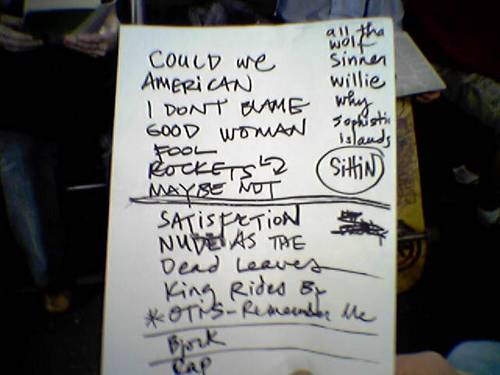 COULD we
AMERICAN
I DONT BLAME
GOOD WOMAN
FOOL
ROCKETS
MAYBE NOT
SATISFACTION
NUDE AS THE
Dead Leaves
King Rides By
* OTIS - Remember Me
Bjork
Rap
all tha
wolf
Sinner
Willie
why
Sophistic
islands
Sittin